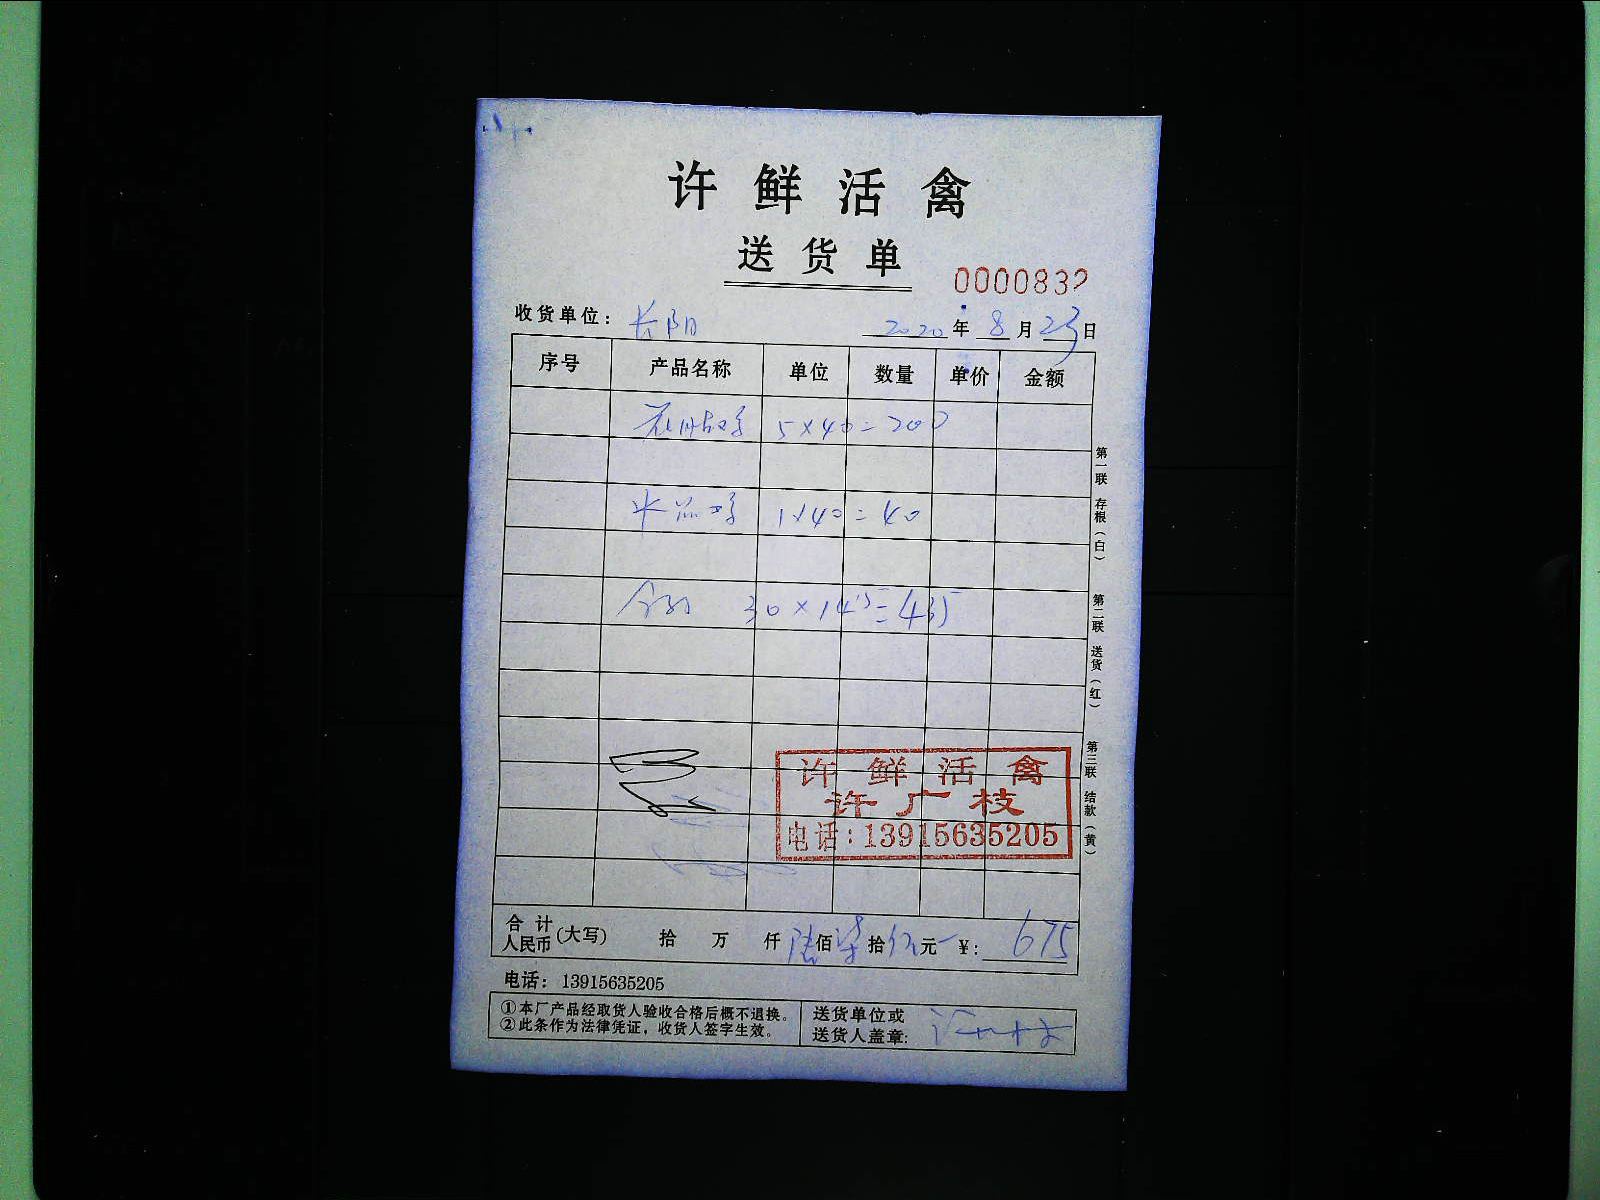 许鲜活禽
送货单
0000832
收货单位：长阳 2020年8月23日
序号 产品名称 单位 数量 单价 金额
5×40=200
1×40=40
30×14.5=435
许鲜活禽
许广枝
电话：13915635205
合计人民币(大写) 拾 万 仟陆佰柒拾伍元 ¥：675
电话：13915635205
①本厂产品经取货人验收合格后概不退换。
②此条作为法律凭证，收货人签字生效。
送货单位或
送货人盖章：许广枝
第一联 存根（白）
第二联 送货（红）
第三联 结款（黄）